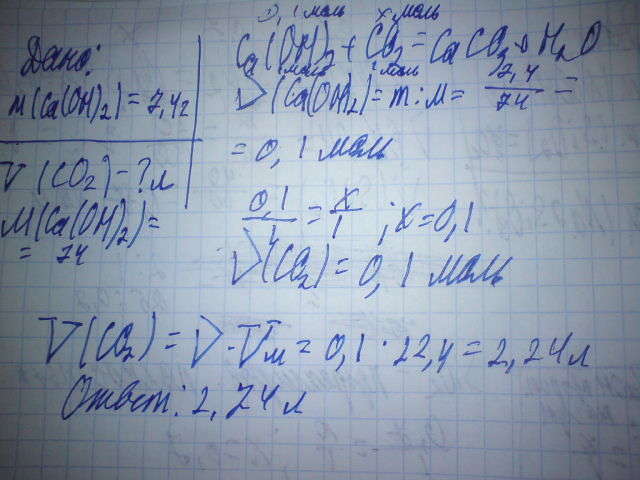 Дано:
m(Ca(OH)2) = 7,4г
V(CO2) - ? л
M(Ca(OH)2) =
= 74
0,1 моль х моль
Ca(OH)2 + CO2 = CaCO3 + H2O
1 моль 1 моль
ν(Ca(OH)2) = m : M = 7,4/74 =
= 0,1 моль
0,1/1 = x/1 ; x = 0,1
ν(CO2) = 0,1 моль
V(CO2) = ν · Vм = 0,1 · 22,4 = 2,24 л
Ответ: 2,24 л